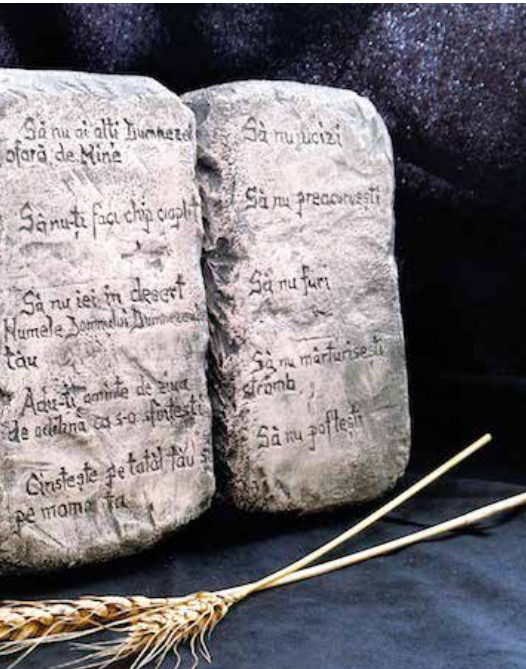 Să nu ai alți Dumnezei
afară de Mine
Să nu-ți faci chip cioplit
Să nu iei în deșert
Numele Domnului Dumnezeului
tău
Adu-ți aminte de ziua
de odihnă ca s-o sfințești
Cinstește pe tatăl tău și
pe mama ta
Să nu ucizi
Să nu preacurvești
Să nu furi
Să nu mărturisești
strâmb
Să nu poftești